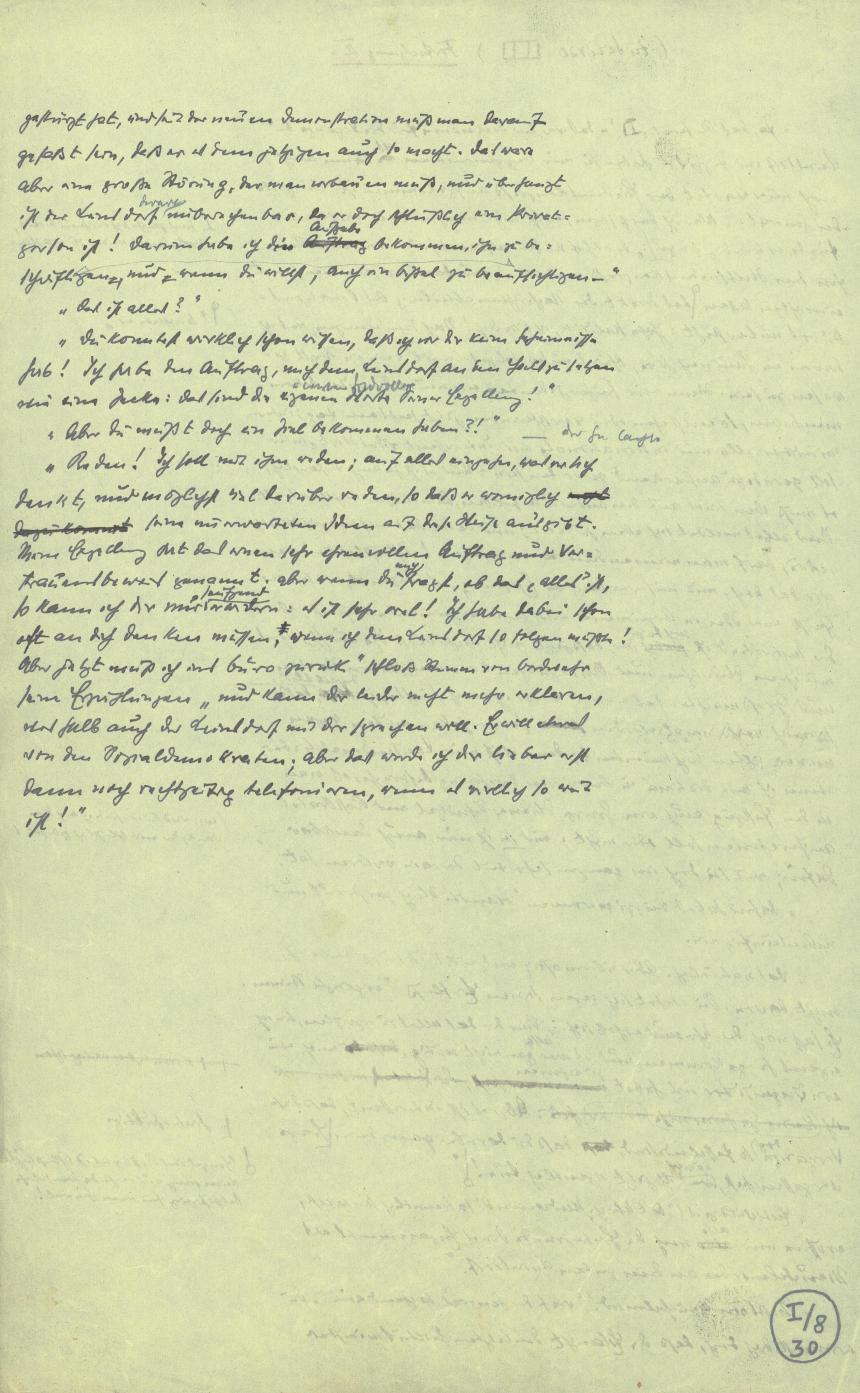 gestürzt hat, und seit der neuen Demonstration muß man darauf
gefaßt sein, daß er es dem jetzigen auch so macht. Das wäre
aber eine große Störung, der man vorbauen muß, und überhaupt
ist der Leinsdorf derart unberechenbar, da er doch schließlich eine Privat=
person ist! Darum habe ich die Auftrag Aufgabe bekommen, ihn zu be=
schäftigen, und, wenn du willst, auch ein bißel zu beaufsichtigen –"
„Das ist alles?"
„Du könntest wirklich schon wissen, daß ich vor dir kein Geheimnisse
hab! Ich habe den Auftrag, mich dem Leinsdorf an den Hals zu setzen
wie eine Zecke: das sind die eigenen Worte Seiner Exzellenz!"
„Aber du mußt doch ein Ziel bekommen haben?!"
„Reden! Ich soll mit ihm reden; auf alles eingehen, was er sich
denkt, und möglichst viel darüber reden, so daß er womöglich
dazu kommt seine unerwarteten Ideen auf diese Weise aufgibt.
Seine Exzellenz hat das einen sehr ehrenvollen Auftrag und Ver=
trauensbeweis genannt; aber wenn du mich fragst, ob das „alles" ist,
so kann ich dir nur seufzend erwidern: es ist sehr viel! Ich habe dabei schon
oft an dich denken müssen, wenn ich dem Leinsdorf so folgen mußte!
Aber jetzt muß ich ins Büro zurück" schloß Stumm von Bordwehr
seine Erzählungen „und kann dir leider nicht mehr erklären,
weshalb auch der Leinsdorf mit dir sprechen will. Er will etwas
von den Sozialdemokraten; aber das werde ich dir lieber erst
dann noch rechtzeitig telefonieren, wenn es wirklich so weit
ist!"
I/8
30